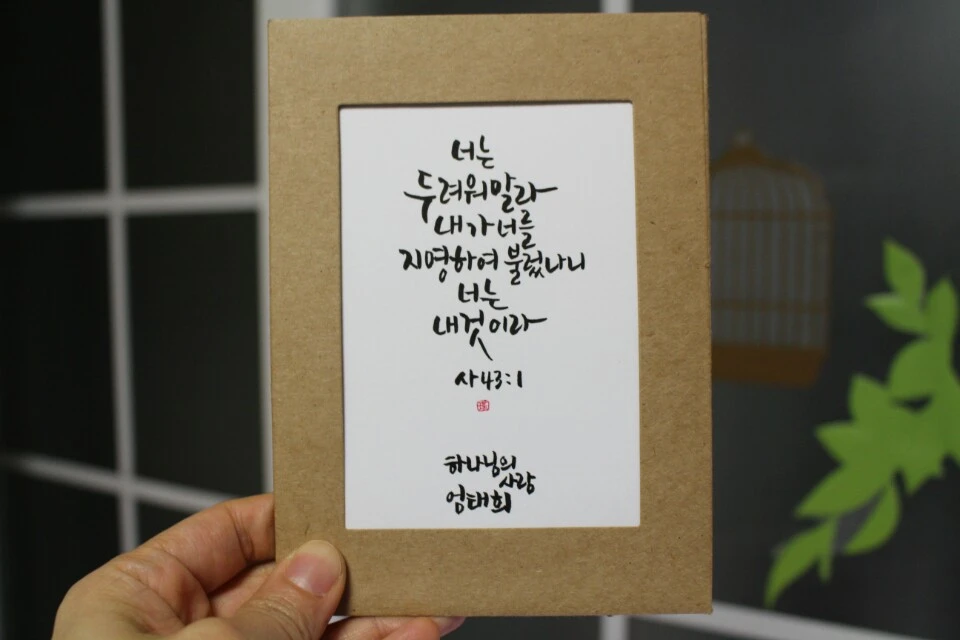 너는
두려워말라
내가너를
지명하여 불렀나니
너는
내것이라
사43:1
하나님의
사랑
엄태희